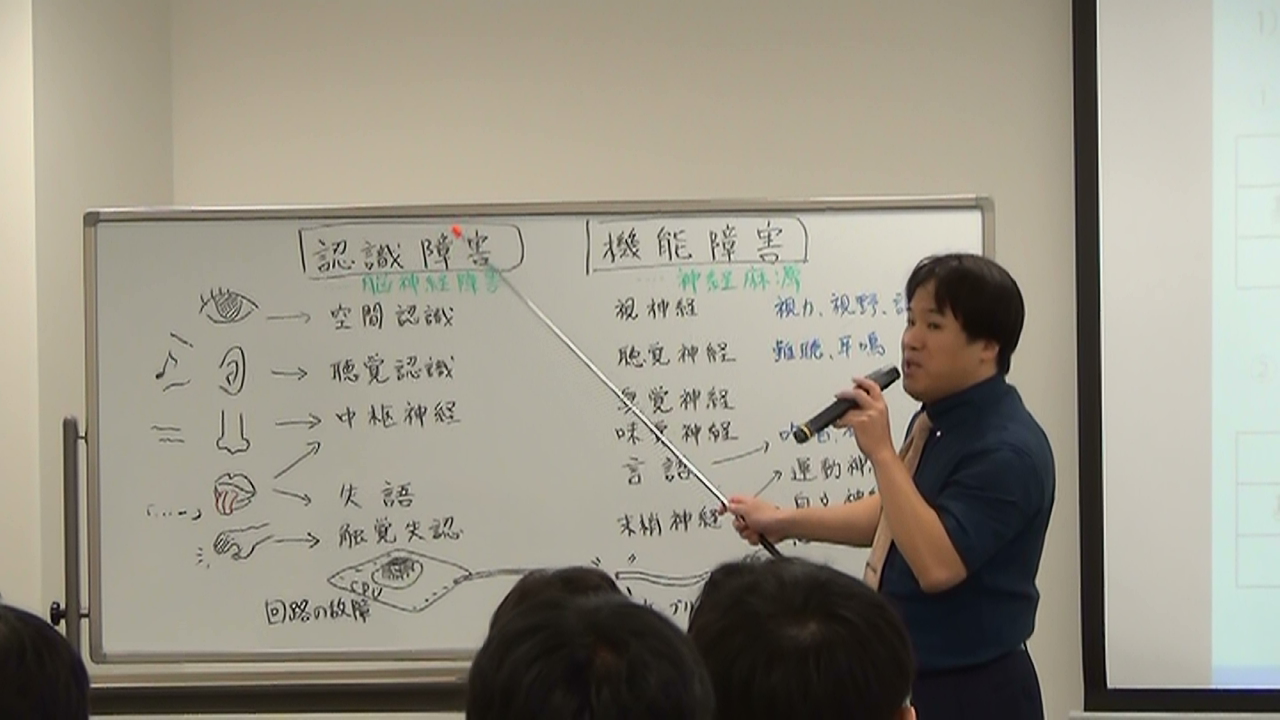 認識障害
脳神経障害
空間認識
聴覚認識
中枢神経
失語
触覚失認
CPU
回路の故障
機能障害
神経麻痺
視神経 視力、視野、
聴覚神経 難聴、耳鳴
臭覚神経
味覚神経
言語
運動神
末梢神経